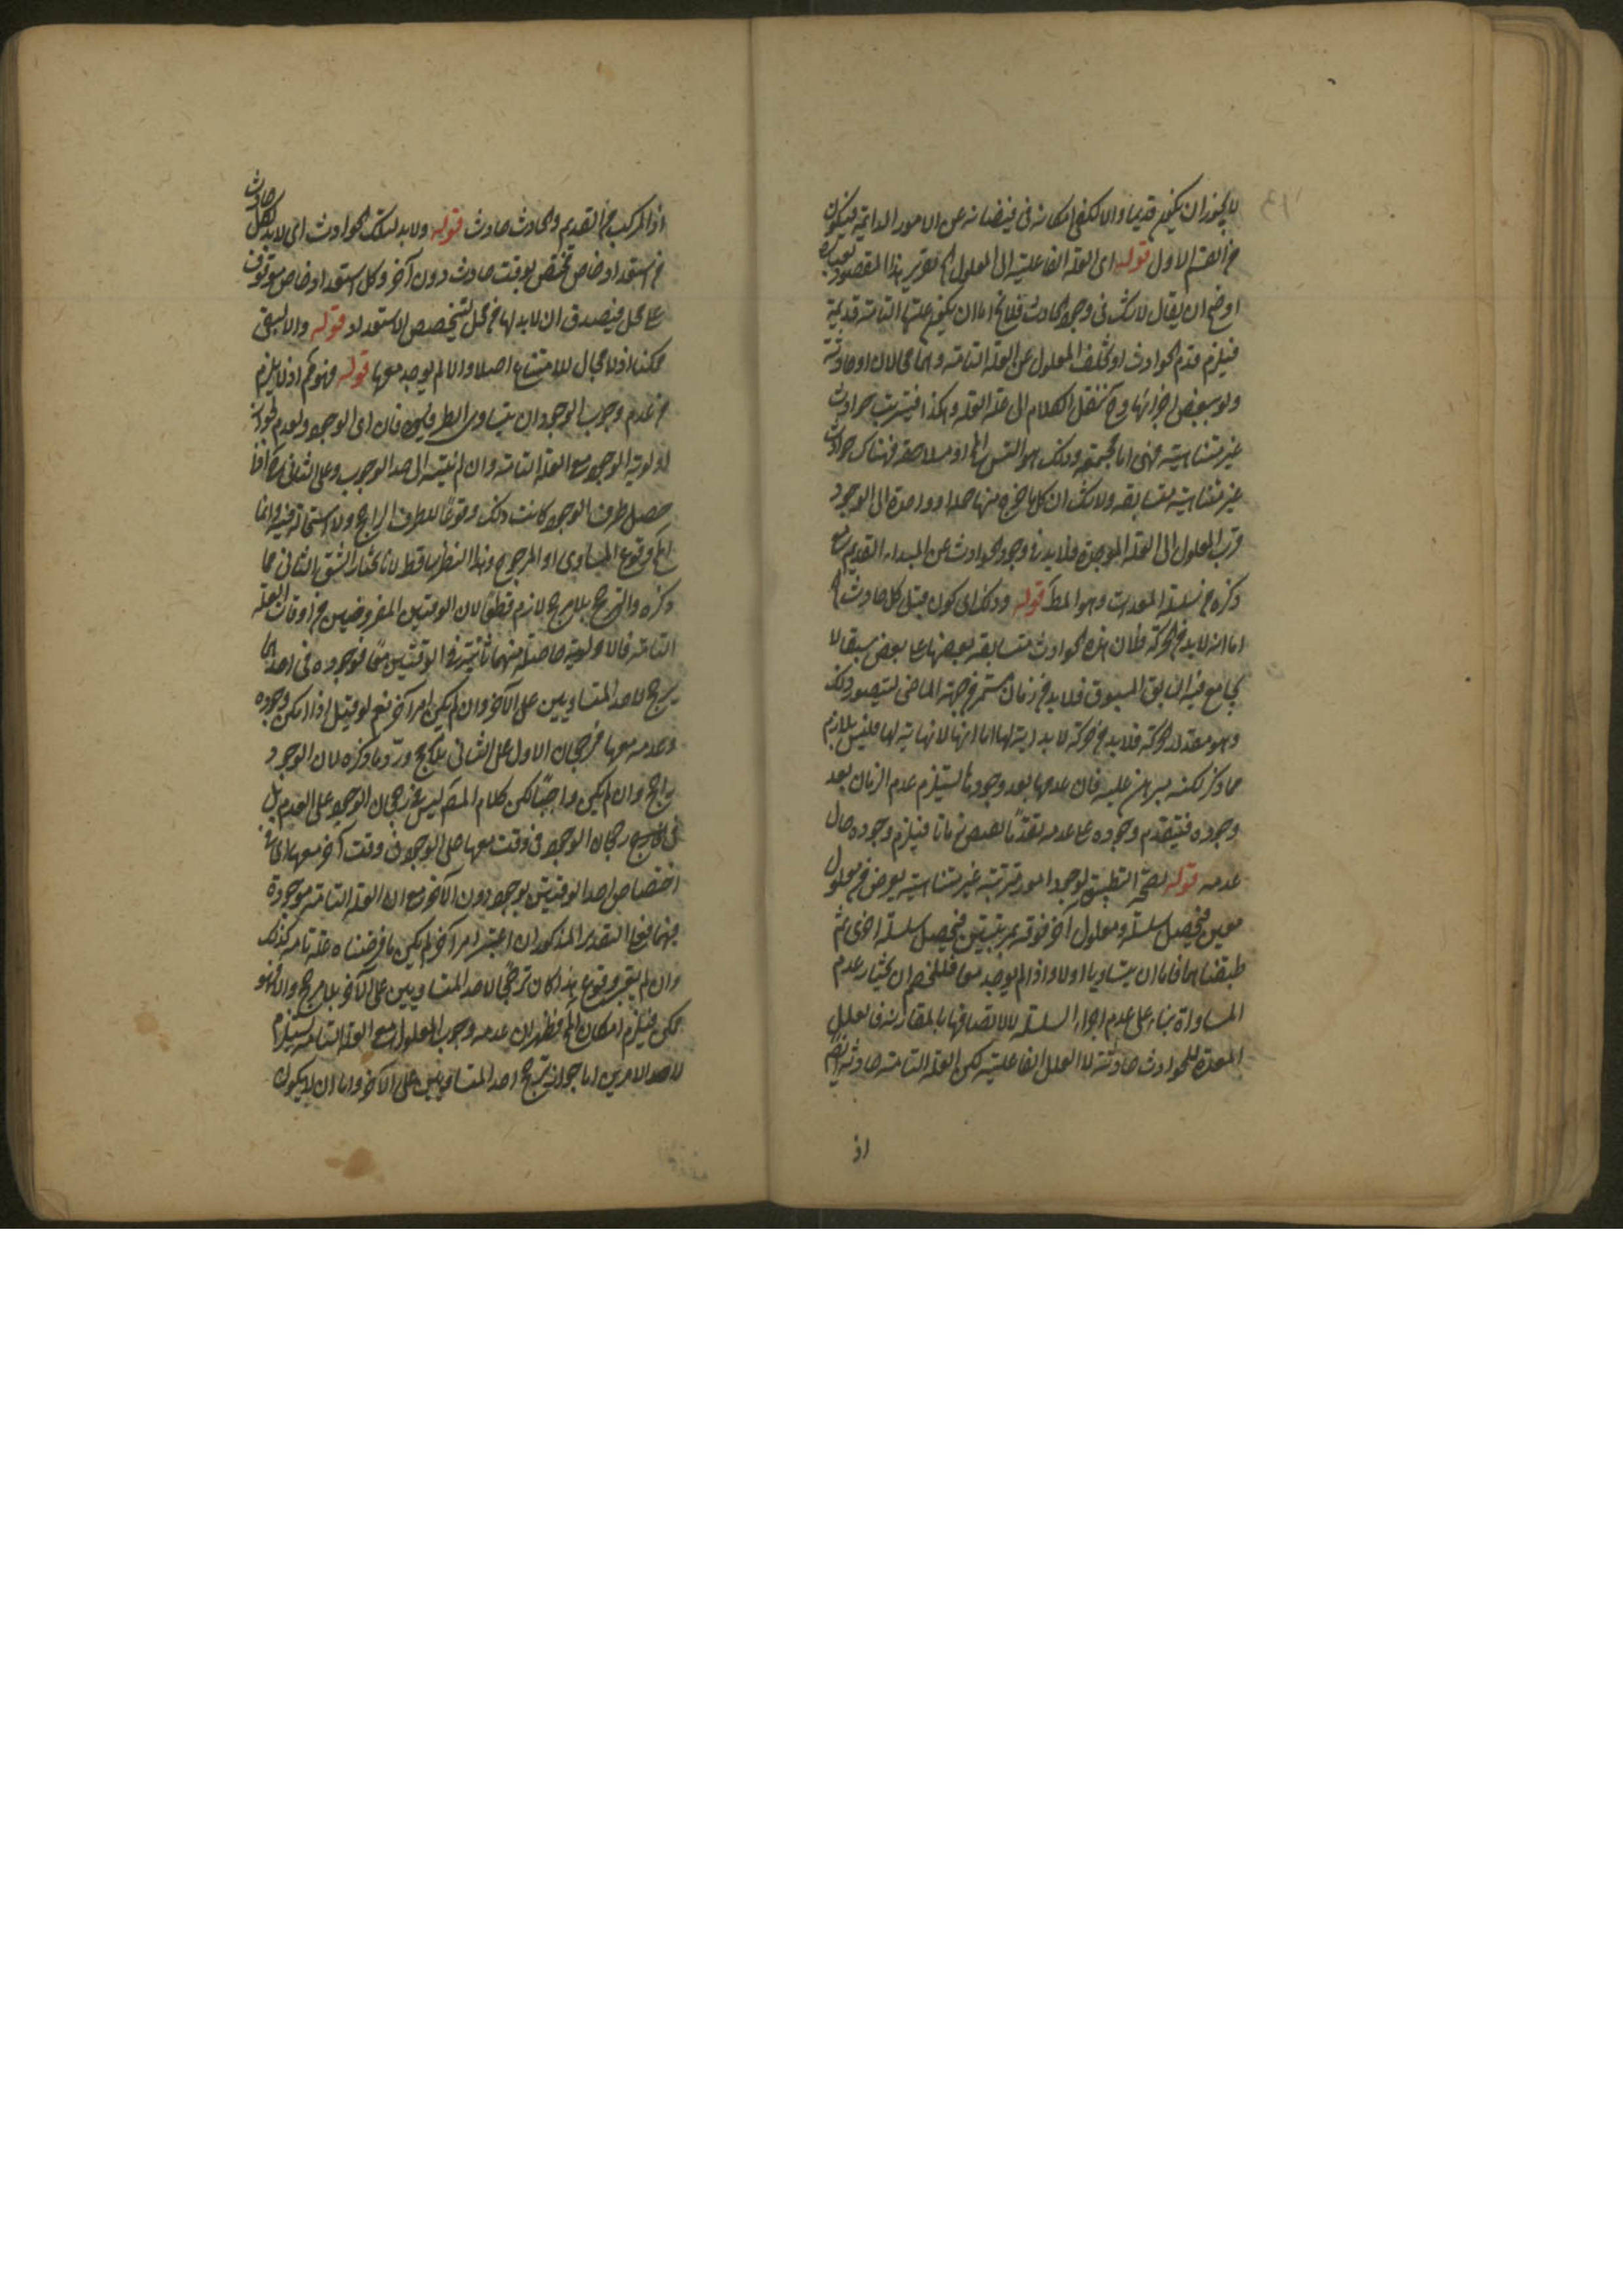 لا يجوز ان يكون قديما والا لكفى امكانه فى فيضانه عن الامور الدائمة فيكون
من القسم الاول قوله اى العلة الفاعلية الى المعلول تقرير هذا المقصود بعبارة
اوضح ان يقال لا شك فى وجود الحادث فلا يخ اما ان يكون علتها التامة قديمة
فيلزم قدم الحوادث او تخلف المعلول عن العلة التامة وهما محالان او حادثة
ولو ببعض اجزائها وح ننقل الكلام الى علة العلة وهكذا فيترتب حوادث
غير متناهية فهى اما مجتمعة وذلك هو التس المح او متلاحقة فهناك حوادث
غير متناهية متسابقة ولا شك ان كل ما خرج منها حدا واحدة الى الوجود
قرب المعلول الى العلة الموجدة فلا بد فى وجود الحوادث عن المبداء القديم مع
ذكره من سلسلة المعدات وهو المط قوله وذلك اى كون قبل كل حادث
اما انه لا بد من حركة فلان هذه الحوادث متسابقة بعضها على بعض سبقا لا
يجامع فيه السابق المسبوق فلا بد من زمان مستمر من جهة الماضى ليتصور ذلك
وهو مقدار لحركة فلا بد من حركة لا بداية لها اما انها لا نهاية لها فليس بلازم
مما ذكر لكنه يبرهن عليه فان عدمها بعد وجودها يستلزم عدم الزمان بعد
وجوده فيتقدم وجوده على عدمه تقدما يقتضى زمانا فيلزم وجوده حال
عدمه قوله لصحة التطبيق لوجود امور مترتبة غير متناهية يفرض من معلول
معين فيحصل سلسلة ومعلول آخر فوقه بمرتبتين فيحصل سلسلة اخرى ثم
طبقناهما فاما ان يتساويا اولا واذا لم يوجد معا فللخصم ان يختار عدم
المساواة بناء على عدم اجزاء السلسلة لا لاتصافها بالمقارنة فالعلل
المعدة للحوادث حادثة لا العلل الفاعلية لكن العلة التامة حادثة ايضا
اذ
اذ المركب من القديم والحادث حادث قوله ولا بد لتلك الحوادث اى لا بد لكل حادث
من استعداد خاص تختص بوقت حادث دون آخر وكل استعداد خاص موقوف
على محل فيصدق ان لا بد لها من محل لتخصص الاستعداد قوله والا لبقى
ممكنا اذ لا مجال للامتناع اصلا والا لم يوجد معها قوله ممنوع اذ لا يلزم
من عدم وجوب الوجود ان يتساوى الطرفين فان اى الوجود والعدم لجواز
اولوية الوجود مع العلة التامة وان لم ينته الى حد الوجوب وعلى الثانى
حصل طرف الوجود كانت ذلك وقوعا للطرف الراجح ولا استحالة فيه وانما
المح وقوع المساوى او المرجوح وهذا النظر ساقط لانا نختار الشق الثانى مما
ذكره والترجيح بلا مرجح لازم قطعا لان الوقتين المفروضين من اوقات العلة
التامة فالاولوية حاصلة منهما ثابتة فى الوقتين معا فوجوده فى احدهما
ترجيح لاحد المتساويين على الآخر وان لم يكن امر آخر نعم لو قيل اذا امكن وجوده
وعدمه معها فرجحان الاول على الثانى بلا مرجح ورد وما ذكره لان الوجود
راجح وان لم يكن واجبا لكن كلام المص ليس فى رجحان الوجود على العدم بل
فى رجحان الوجود فى وقت معها على الوجود فى وقت آخر معها اى فى
اختصاص احد الوقتين بوجود دون الآخر مع ان العلة التامة موجودة
فيهما فعلى التقدير المذكور ان اعتبر امر آخر لم يكن ما فرضناه علة تامة كذلك
وان لم يعتبر وقوع هذا كان ترجيحا لاحد المتساويين على الآخر بلا مرجح والا فهو
ممكن فيلزم امكان المح فظهر ان عدم وجوب المعلول مع العلة التامة يستلزم
لاحد الامرين اما جواز ترجيح احد المتساويين على الآخر واما ان لا يكون